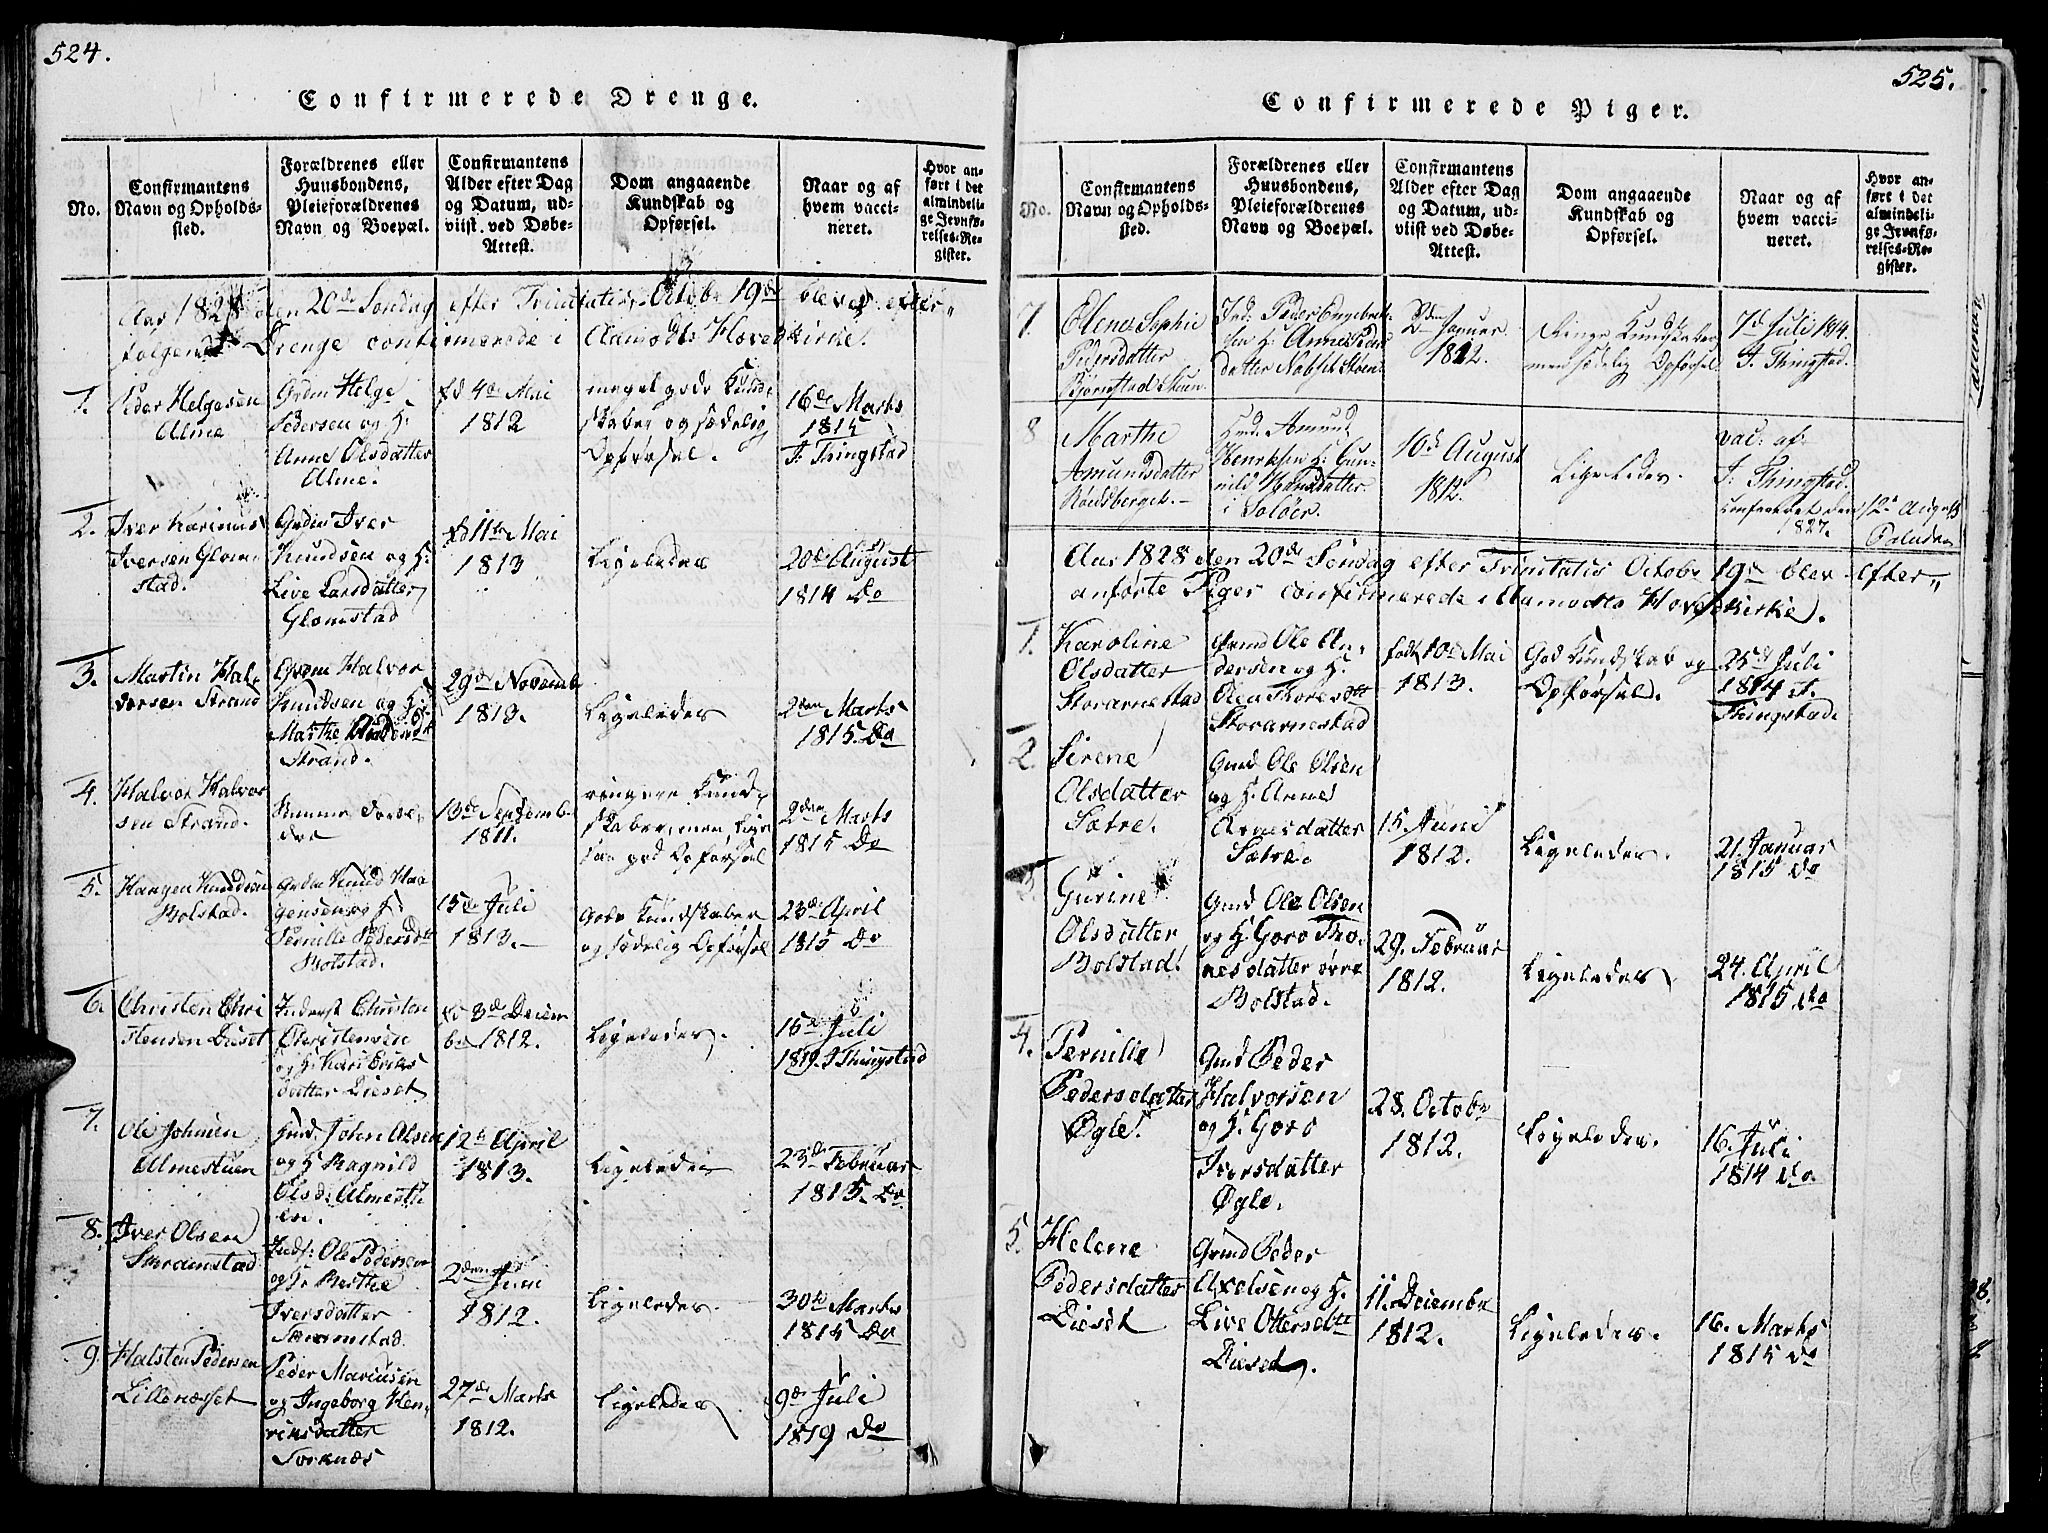 524.
Confirmerede Drenge.
No.
Confirmantens
Navn og Opholds-
sted.
Forældrenes eller
Huusbondens,
Pleieforældrenes
Navn og Boepæl.
Confirmantens
Alder efter Dag
og Datum, ud-
viist ved Døbe-
Attest.
Dom angaaende
Kundskab og
Opførsel.
Naar og af
hvem vacci-
neret.
Hvor an-
ført i det
almindeli-
ge Jevnfø-
relses-Re-
gister.
Aar 1828 den 20de Søndag efter Trinitatis, Octobr 19de bleve efter-
følgende Drenge confirmerede i Aamodts Hovedkirke.
1.
Peder Helgesen
Alme
Grdm Helge
Pedersen og H:
Anne Olsdatter
Alme.
fd 4de Mai
1812
meget gode Kund-
skaber og sædelig
Opførsel.
16de Marts
1815
J. Thingstad
2.
Iver
Iversen Glom-
stad.
Grdm Iver
Knudsen og H:
Live Larsdatter
Glomstad
fd 11te Mai
1813
Ligeledes
20de August
1814 Do
3.
Martin Hal-
vorsen Strand
Grdm Halvor
Knudsen og H:
Marthe
Strand.
29de Novemb
1813.
Ligeledes
2den Marts
1815. Do
4.
Halvor Halvor
sen Strand.
Samme Foræl-
dre
13de Septemb.
1811.
ringere Kund-
skaber, men lige
saa god Opførsel
2den Marts
1815 Do
5.
Haagen Knudsen
Bolstad.
Grdm Knud Haa
gensen og H:
Pernille Pedersdtr
Bolstad.
15de Juli
1813.-
Gode Kundskaber
og sædelig Opførsel
23de April
1815 Do
6.
Christen Chri
stensen Dieset
Inderst Christen
Christensen
og H: Kari Eriks
datter Dieset
fd 8de Decem
br 1812.
Ligeledes.
15de Juli
1819. J Thingstad
7.
Ole Johnsen
Almestuen
Huusd: John Olsen
og H Ragnild
Olsd: Almestu
en.
12te April
1813.
Ligeledes
23de Februar
1815. Do
8.
Iver Olsen
Inds: Ole Pedersen
og H: Berthe
Iversdatter
2den Juni
1812.
Ligeledes.
30te Marts
1815 Do
9.
Halsten Pedersen
Lillenæsset
Peder Mariusen
og Ingeborg Hen-
riksdatter
Torknæs
27de Marts
1812.
Ligeledes
9de Juli
1819 Do
525.
Confirmerede Piger.
No.
Confirmantens
Navn og Opholds-
sted.
Forældrenes eller
Huusbondens,
Pleieforældrenes
Navn og Boepæl.
Confirmantens
Alder efter Dag
og Datum, ud-
viist ved Døbe-
Attest.
Dom angaaende
Kundskab og
Opførsel.
Naar og af
hvem vacci-
neret.
Hvor an-
ført i det
almindeli-
ge Jevnfø-
relses-Re-
gister.
7.
Elene Sophie
Pedersdatter
Bjørnstad Skuen
Ind: Peder Engebret-
sen H: Anne Peders
datter
2den Januar
1812.
Ringe Kundskaber
men sædelig Opførsel
7d Juli 1814.
J. Thingstad.
8
Marthe
Amundsdatter
Rondsberget.-
Huusd. Amund
Henriksen H: Gun-
nild Hansdatter
i Soløer.
10d August
1812.
Ligeledes.
vac: af
J: Thingstad.
confirmeret den 12d August
1827. Paludan
Aar 1828 den 20de Søndag efter Trinitatis Octobr 19de blev efter-
anførte Piger confirmerede i Aamodts Hovedkirke.
1.
Karoline
Olsdatter
Storarnestad
Grmd Ole An-
dersen og H:
Olea Thoresdtr
Storarnestad
født 10de Mai
1813.
God Kundskab og
Opførsel.
25d Juli
1814 J.
Thingstad.
2.
Sirene
Olsdatter
Sætre.
Gmd Ole Olsen
og H. Anne
Arnesdatter
Sætre.
15. Juni
1812.
Ligeledes.
21. Januar
1815 Do
3.
Gurine
Olsdatter
Bolstad.
Gmd Ole Olsen
og H. Goro Tho-
nesdatter øvre
Bolstad.
29. Februar
1812.
Ligeledes
24. April
1815 Do
4.
Pernille
Pedersdatter
Øgle.
Gmd Peder
Halvorsen
og H. Goro
Iversdatter
Øgle.
28. Octobr
1812.
Ligeledes.
16. Juli
1814 Do.
5.
Helene
Pedersdatter
Dieset
Grmd Peder
Axelsen og H.
Live Ottersdtr
Dieset.
11. Decembr
1812.
Ligeledes.
16. Marts
1815 Do